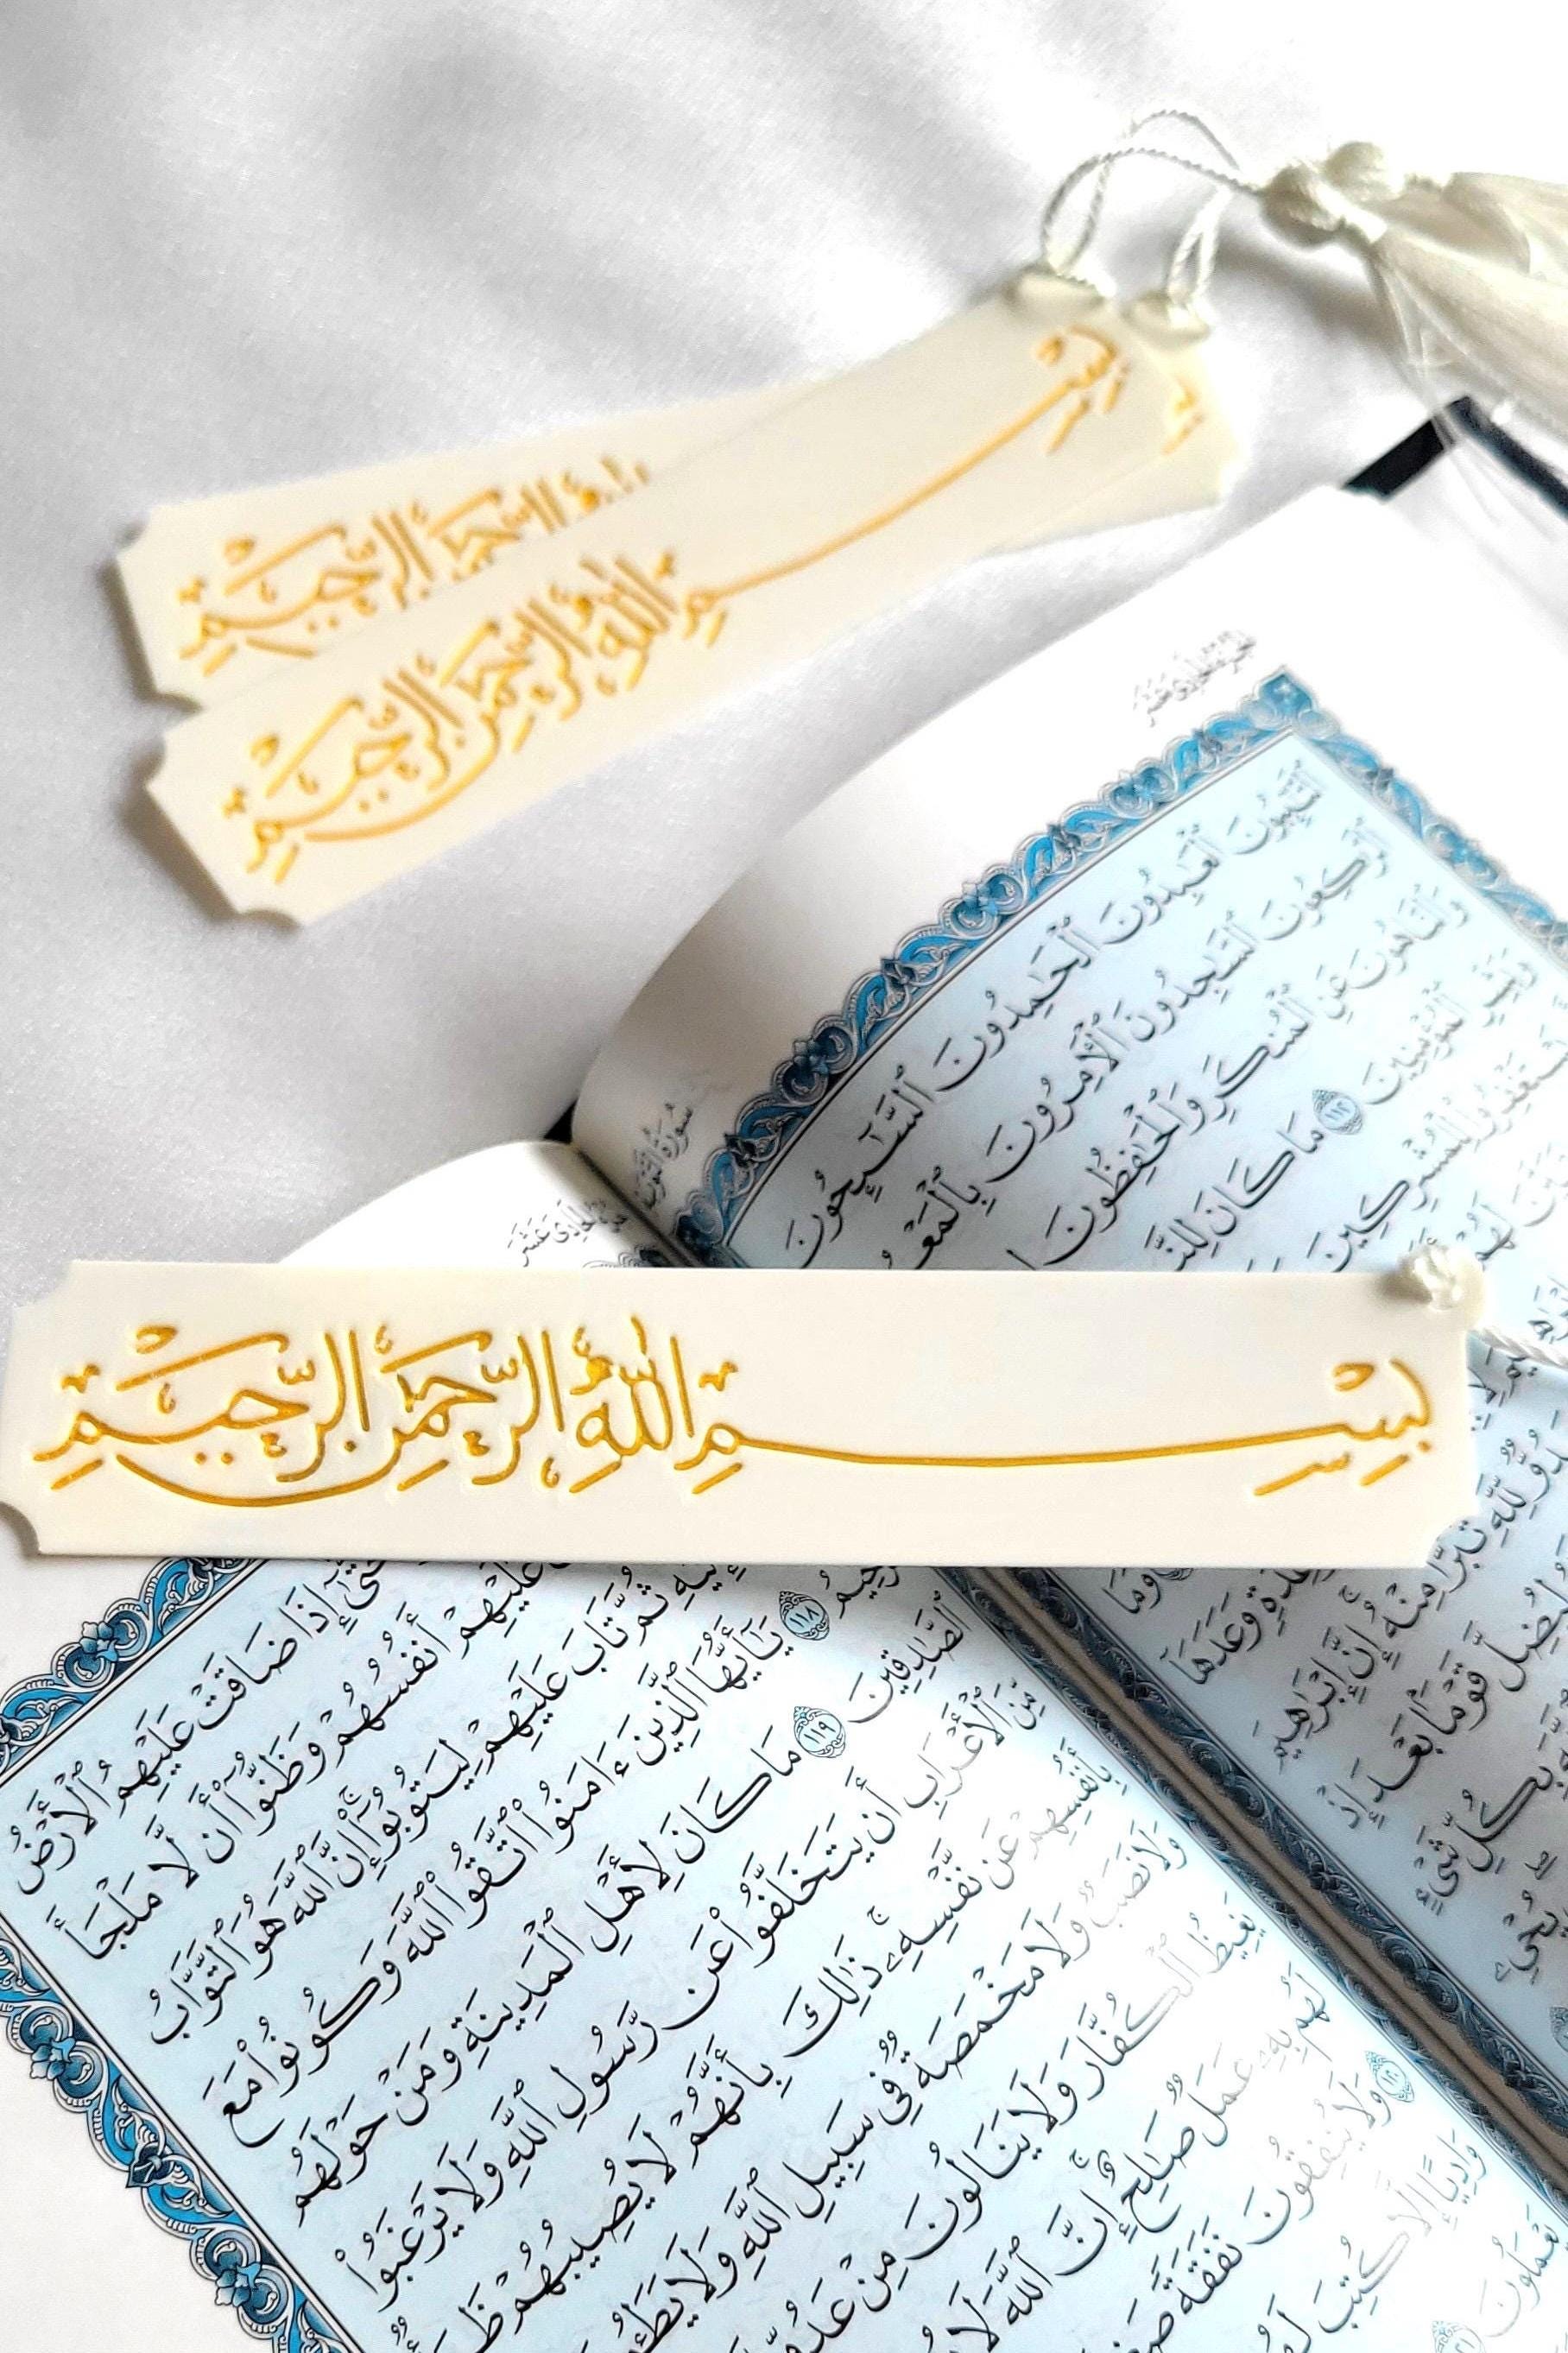 بِسْمِ اللَّهِ الرَّحْمَٰنِ الرَّحِيمِ
بِسْمِ اللَّهِ الرَّحْمَٰنِ الرَّحِيمِ
الرَّحِيمِ
سُورَةُ التَّوْبَةِ
ٱلتَّٰٓئِبُونَ ٱلْعَٰبِدُونَ ٱلْحَٰمِدُونَ ٱلسَّٰٓئِحُونَ
ٱلرَّٰكِعُونَ ٱلسَّٰجِدُونَ ٱلْءَامِرُونَ بِٱلْمَعْ
وَٱلنَّاهُونَ عَنِ ٱلْمُنكَرِ وَٱلْحَٰفِظُونَ
وَبَشِّرِ ٱلْمُؤْمِنِينَ ١١٢ مَا كَانَ لِلنَّ
لِلْمُشْرِكِينَ
وَمَا
وَعَدَهَا
لِلَّهِ تَبَرَّأَ مِنْهُ إِنَّ إِبْرَٰهِيمَ
لِيُضِلَّ قَوْمًۢا بَعْدَ إِذْ
بِكُلِّ شَىْءٍ
الجزء الحادي عشر
حَتَّىٰٓ إِذَا ضَاقَتْ عَلَيْهِمُ ٱلْأَرْضُ
عَلَيْهِمْ أَنفُسُهُمْ وَظَنُّوٓا۟ أَن لَّا مَلْجَأَ
إِلَيْهِ ثُمَّ تَابَ عَلَيْهِمْ لِيَتُوبُوٓا۟ إِنَّ ٱللَّهَ هُوَ ٱلتَّوَّابُ
ٱلرَّحِيمُ ١١٨ يَٰٓأَيُّهَا ٱلَّذِينَ ءَامَنُوا۟ ٱتَّقُوا۟ ٱللَّهَ وَكُونُوا۟ مَعَ
ٱلصَّٰدِقِينَ ١١٩ مَا كَانَ لِأَهْلِ ٱلْمَدِينَةِ وَمَنْ حَوْلَهُم
مِّنَ ٱلْأَعْرَابِ أَن يَتَخَلَّفُوا۟ عَن رَّسُولِ ٱللَّهِ وَلَا يَرْغَبُوا۟
بِأَنفُسِهِمْ عَن نَّفْسِهِۦ ذَٰلِكَ بِأَنَّهُمْ لَا يُصِيبُهُمْ ظَ
وَلَا نَصَبٌ وَلَا مَخْمَصَةٌ فِى سَبِيلِ ٱللَّهِ وَلَا يَطَـُٔ
يَغِيظُ ٱلْكُفَّارَ وَلَا يَنَالُونَ مِنْ عَدُوٍّ
لَهُم بِهِۦ عَمَلٌ صَٰلِحٌ إِنَّ ٱللَّهَ لَا
١٢٠ وَلَا يُنفِقُونَ نَفَقَةً
وَادِيًا إِلَّا كُتِبَ لَهُمْ
يَعْمَلُونَ ١٢١
بِسْمِ اللَّهِ الرَّحْمَٰنِ الرَّحِيمِ